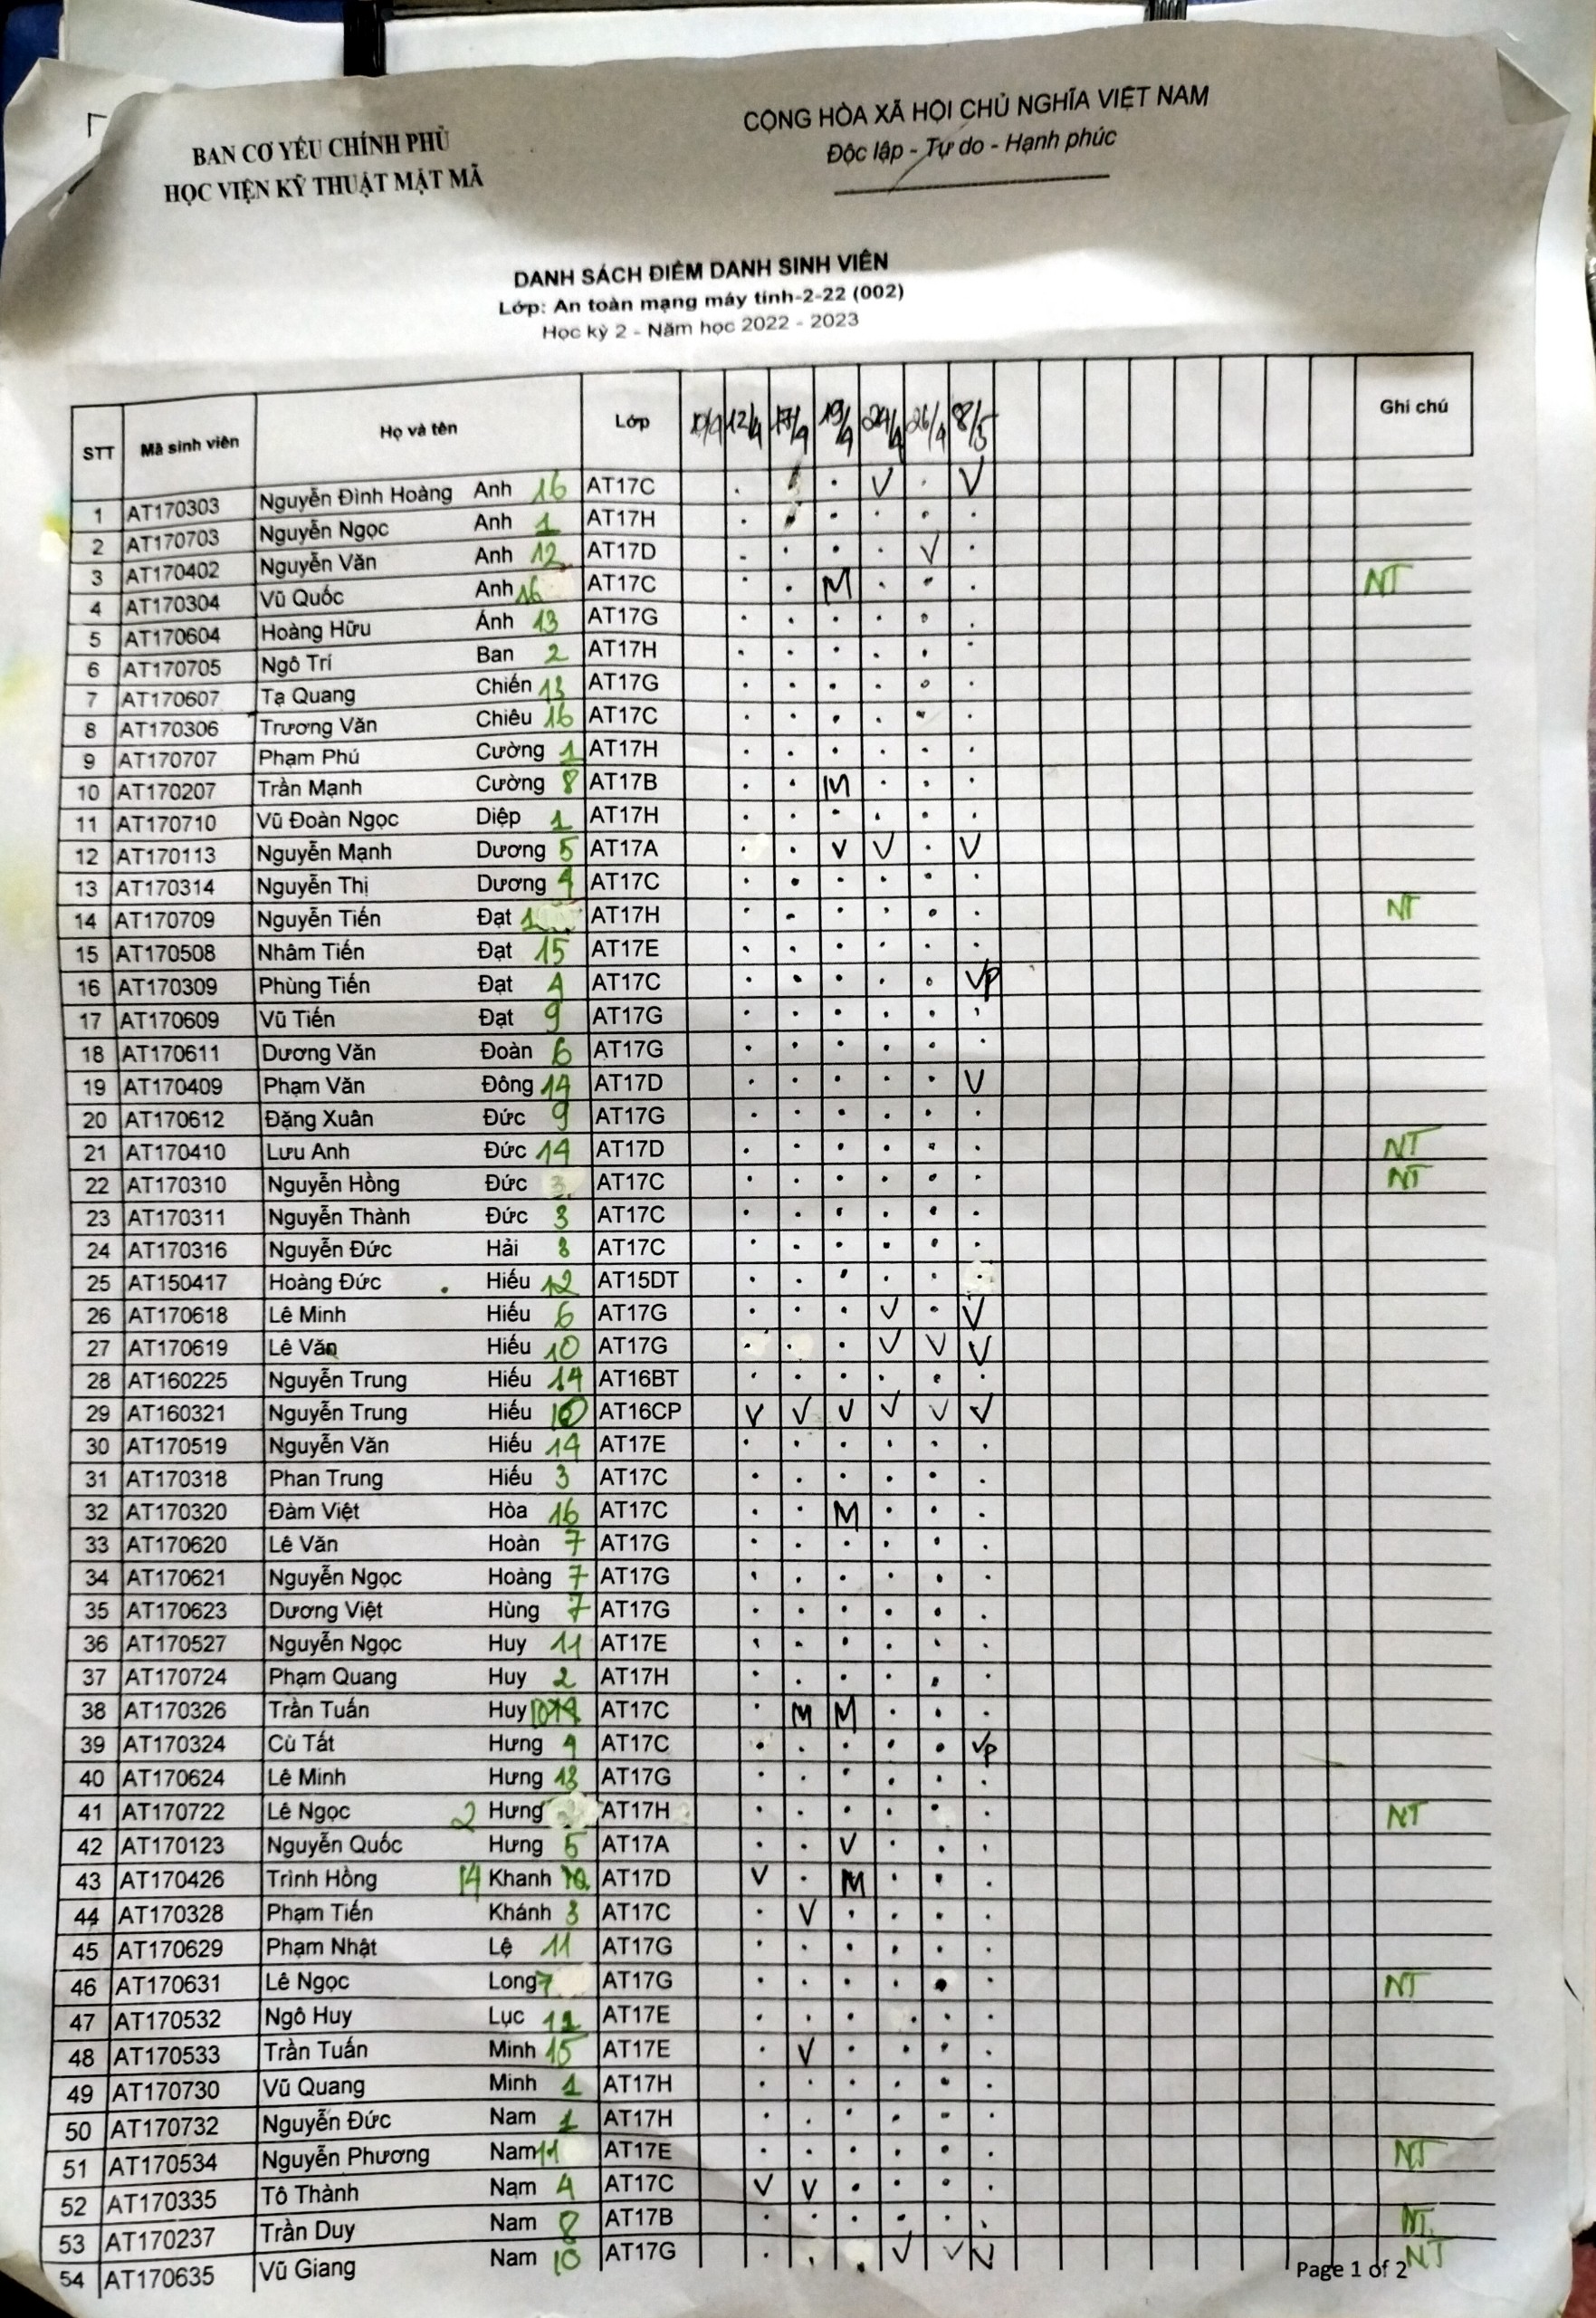 BAN CƠ YẾU CHÍNH PHỦ
HỌC VIỆN KỸ THUẬT MẬT MÃ
CỘNG HÒA XÃ HỘI CHỦ NGHĨA VIỆT NAM
Độc lập - Tự do - Hạnh phúc
DANH SÁCH ĐIỂM DANH SINH VIÊN
Lớp: An toàn mạng máy tính-2-22 (002)
Học kỳ 2 - Năm học 2022 - 2023
STT Mã sinh viên Họ và tên Lớp 12/4 17/4 19/4 24/4 26/4 8/5 Ghi chú
1 AT170303 Nguyễn Đình Hoàng Anh 16 AT17C V V
2 AT170703 Nguyễn Ngọc Anh 1 AT17H
3 AT170402 Nguyễn Văn Anh 12 AT17D V
4 AT170304 Vũ Quốc Anh 16 AT17C M NT
5 AT170604 Hoàng Hữu Ánh 13 AT17G
6 AT170705 Ngô Trí Ban 2 AT17H
7 AT170607 Tạ Quang Chiến 13 AT17G
8 AT170306 Trương Văn Chiêu 16 AT17C
9 AT170707 Phạm Phú Cường 1 AT17H
10 AT170207 Trần Mạnh Cường 8 AT17B M
11 AT170710 Vũ Đoàn Ngọc Diệp 1 AT17H
12 AT170113 Nguyễn Mạnh Dương 5 AT17A V V V
13 AT170314 Nguyễn Thị Dương 4 AT17C
14 AT170709 Nguyễn Tiến Đạt 1 AT17H NT
15 AT170508 Nhâm Tiến Đạt 15 AT17E
16 AT170309 Phùng Tiến Đạt 4 AT17C Vp
17 AT170609 Vũ Tiến Đạt 9 AT17G
18 AT170611 Dương Văn Đoàn 6 AT17G
19 AT170409 Phạm Văn Đông 14 AT17D V
20 AT170612 Đặng Xuân Đức 9 AT17G
21 AT170410 Lưu Anh Đức 14 AT17D NT
22 AT170310 Nguyễn Hồng Đức 3 AT17C NT
23 AT170311 Nguyễn Thành Đức 3 AT17C
24 AT170316 Nguyễn Đức Hải 8 AT17C
25 AT150417 Hoàng Đức Hiếu 12 AT15DT
26 AT170618 Lê Minh Hiếu 6 AT17G V V
27 AT170619 Lê Văn Hiếu 10 AT17G V V V
28 AT160225 Nguyễn Trung Hiếu 14 AT16BT
29 AT160321 Nguyễn Trung Hiếu 10 AT16CP V V V V V V
30 AT170519 Nguyễn Văn Hiếu 14 AT17E
31 AT170318 Phan Trung Hiếu 3 AT17C
32 AT170320 Đàm Việt Hòa 16 AT17C M
33 AT170620 Lê Văn Hoàn 7 AT17G
34 AT170621 Nguyễn Ngọc Hoàng 7 AT17G
35 AT170623 Dương Việt Hùng 7 AT17G
36 AT170527 Nguyễn Ngọc Huy 11 AT17E
37 AT170724 Phạm Quang Huy 2 AT17H
38 AT170326 Trần Tuấn Huy AT17C M M
39 AT170324 Cù Tất Hưng 4 AT17C Vp
40 AT170624 Lê Minh Hưng 13 AT17G
41 AT170722 Lê Ngọc 2 Hưng AT17H NT
42 AT170123 Nguyễn Quốc Hưng 5 AT17A V
43 AT170426 Trình Hồng 14 Khanh AT17D V M
44 AT170328 Phạm Tiến Khánh 3 AT17C V
45 AT170629 Phạm Nhật Lệ 11 AT17G
46 AT170631 Lê Ngọc Long 7 AT17G NT
47 AT170532 Ngô Huy Lục AT17E
48 AT170533 Trần Tuấn Minh 15 AT17E V
49 AT170730 Vũ Quang Minh 1 AT17H
50 AT170732 Nguyễn Đức Nam 1 AT17H
51 AT170534 Nguyễn Phương Nam 11 AT17E NT
52 AT170335 Tô Thành Nam 4 AT17C V V
53 AT170237 Trần Duy Nam 8 AT17B NT
54 AT170635 Vũ Giang Nam 10 AT17G V V V NT
Page 1 of 2